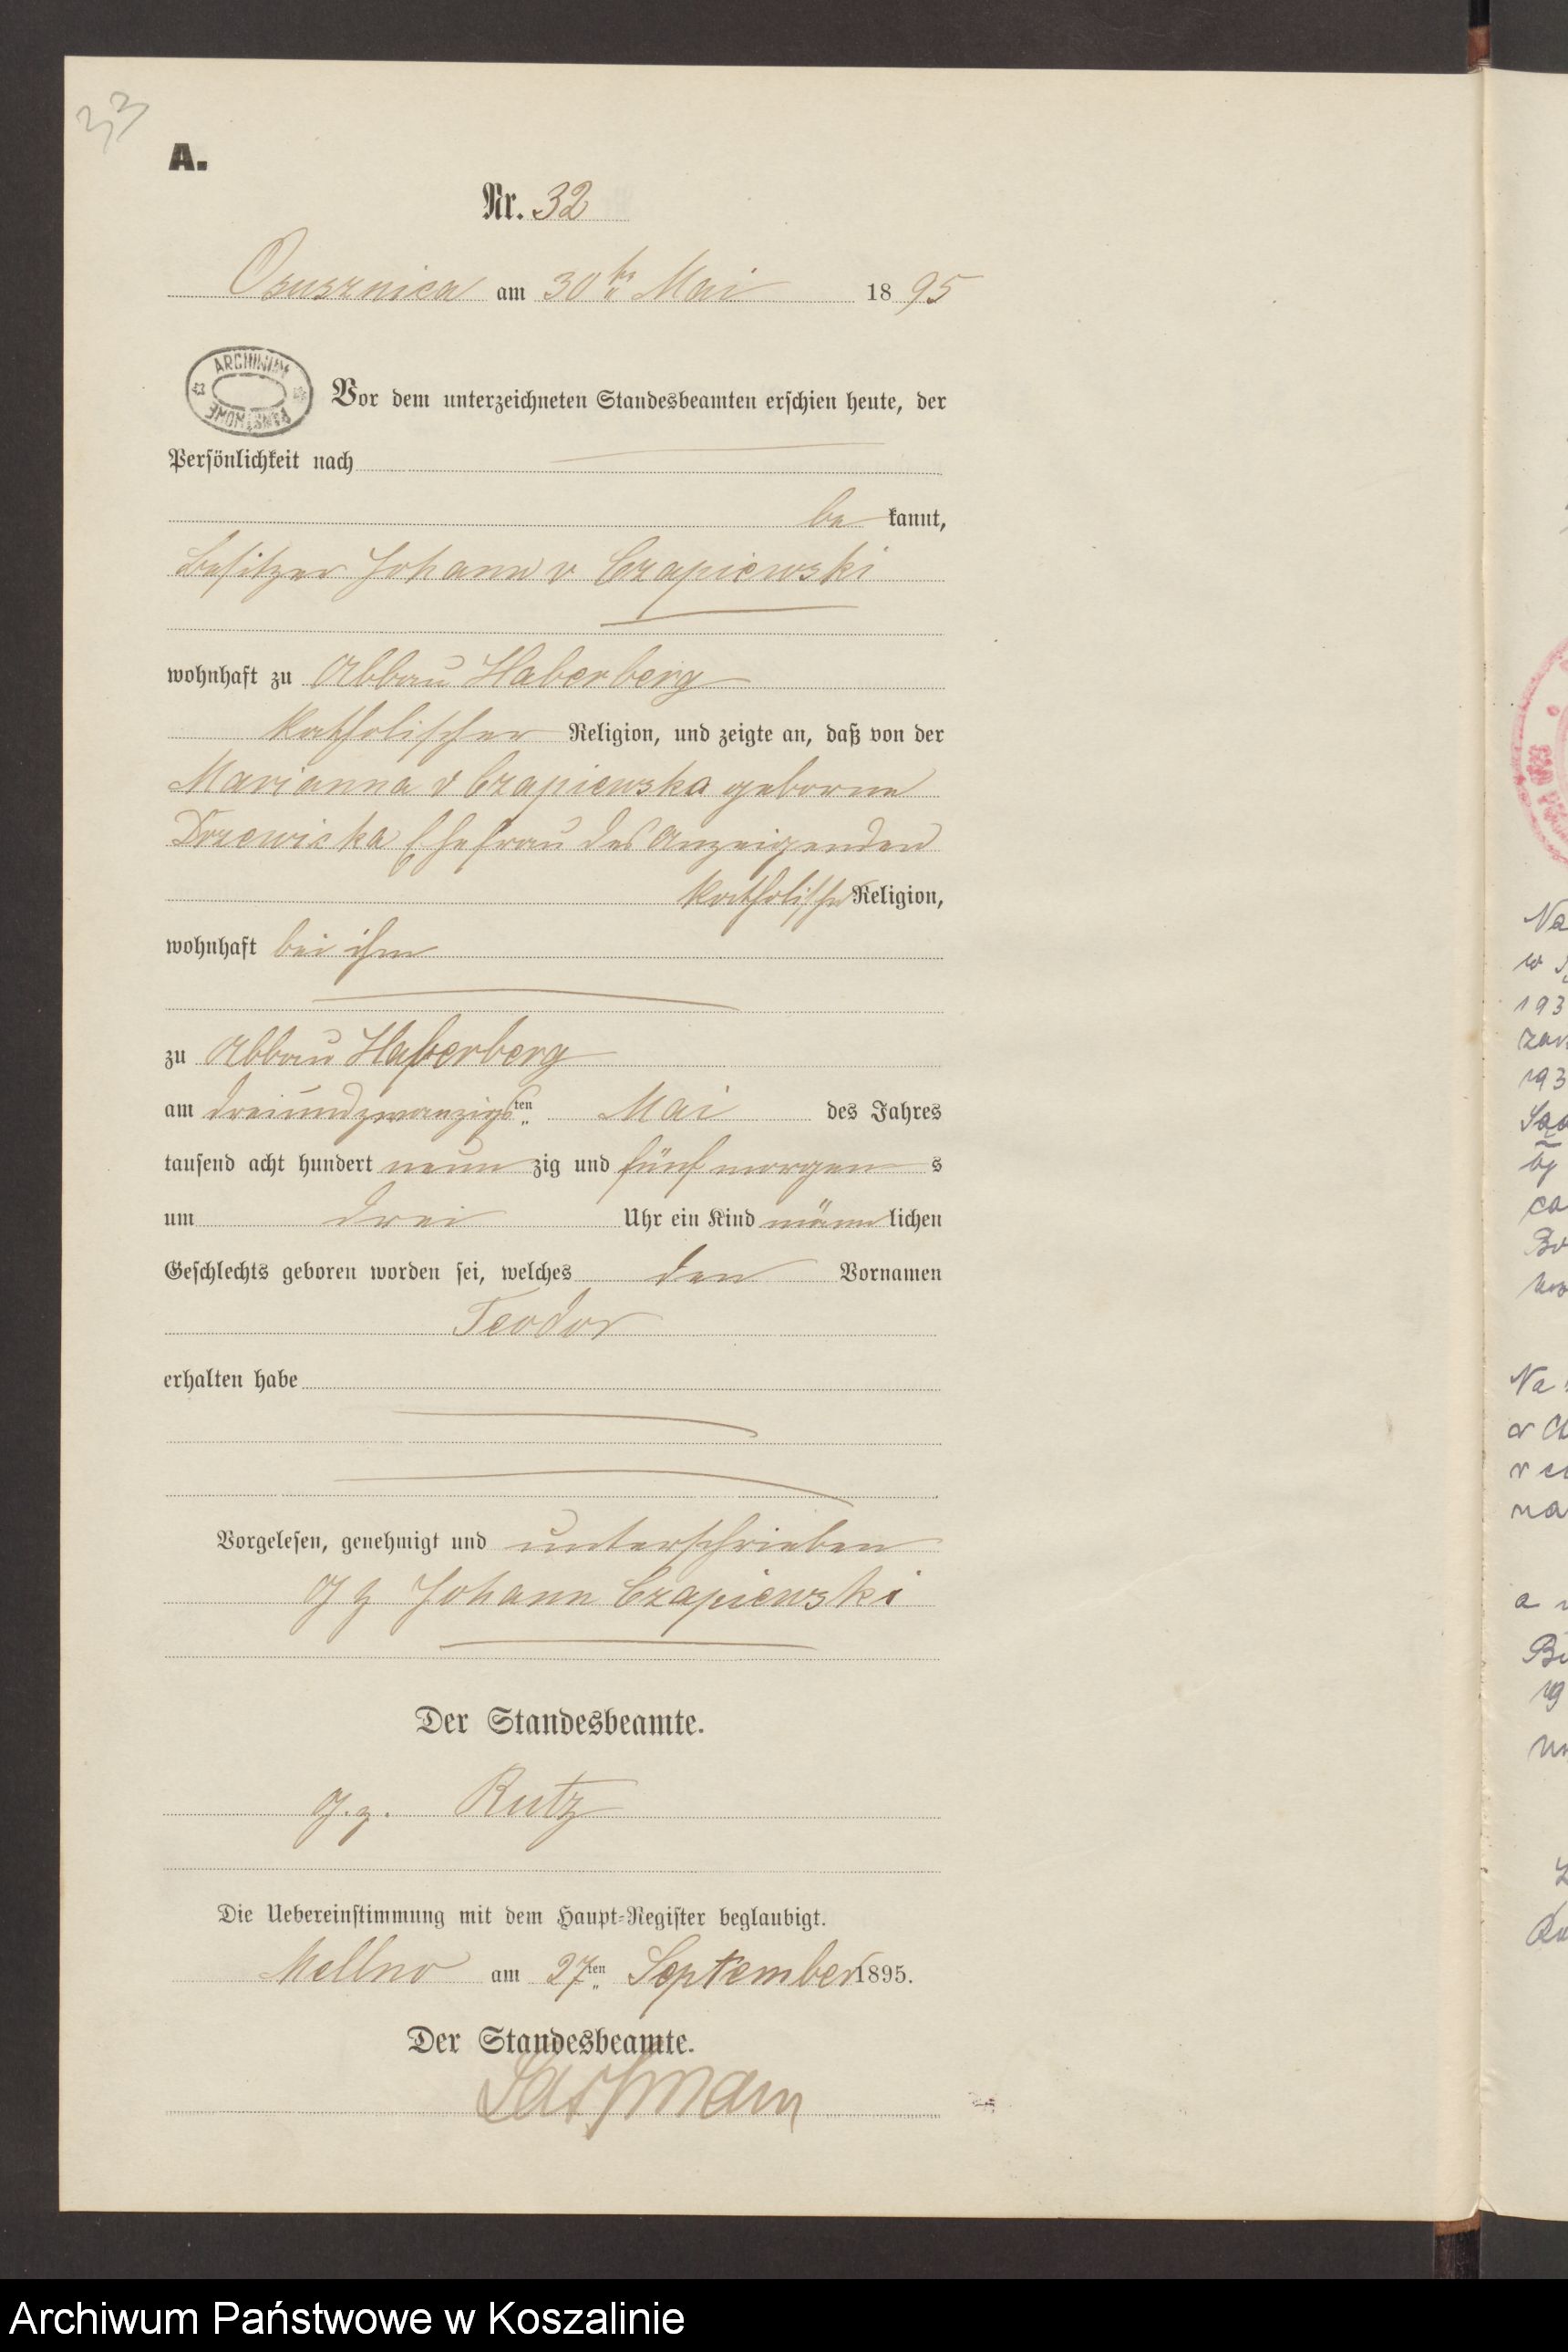 33
A.
Nr. 32
Osusznica am 30ten Mai 1895
ARCHIWUM
PAŃSTWOWE
Vor dem unterzeichneten Standesbeamten erschien heute, der
Persönlichkeit nach
be kannt,
Besitzer Johann v Czapiewski
wohnhaft zu Abbau Haberberg
katholischer Religion, und zeigte an, daß von der
Marianna v Czapiewska geborne
Drzewicka Ehefrau des Anzeigenden
katholischer Religion,
wohnhaft bei ihm
zu Abbau Haberberg
am dreiundzwanzigsten Mai des Jahres
tausend acht hundert neun zig und fünf morgen s
um drei Uhr ein Kind männ lichen
Geschlechts geboren worden sei, welches den Vornamen
Teodor
erhalten habe
Vorgelesen, genehmigt und unterschrieben
gz Johann Czapiewski
Der Standesbeamte.
g.z. Rutz
Die Uebereinstimmung mit dem Haupt-Register beglaubigt.
Mellno am 27ten September 1895.
Der Standesbeamte.
Na
w
193
193
ca
Na
na
a
19
Archiwum Państwowe w Koszalinie